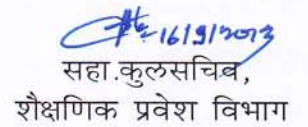 16/9/2013
सहा.कुलसचिव,
शैक्षणिक प्रवेश विभाग